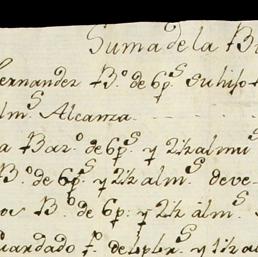 Suma de la B
ernandez B.º de 6 p.s su hijo
alm.s Alcanza
a Bar.º de 6 p.s y 2½ almu
B.º de 6 p.s y 2½ alm.s deve
os B.º de 6 p. y 2½ alm.s
uardado p.